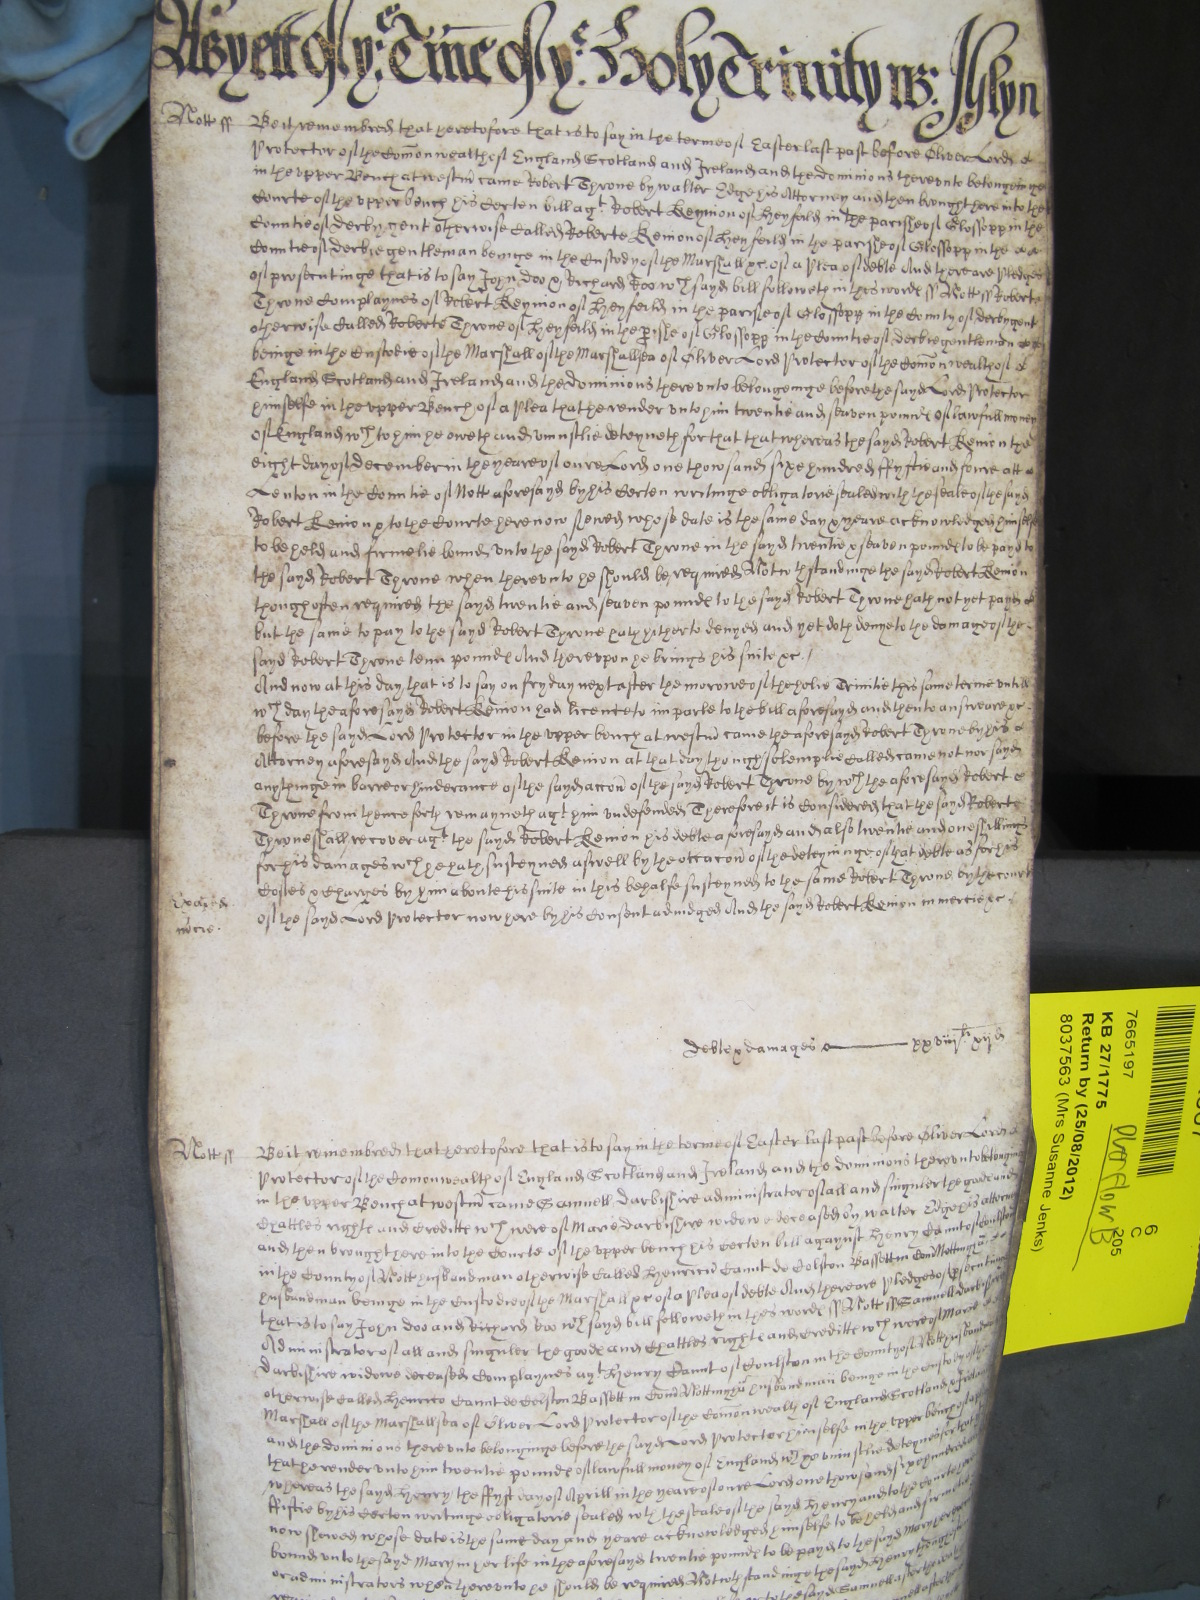 As yett of ye Tme of ye Holy Trinity
Nott ss Be it remembred that heretofore that is to say in the terme of Easter last past before Oliver Lord
Protector of the Comonwealth of England Scotland and Ireland and the dominions therevnto belonginge
in the vpper Bench at westm came Robert Throne by walter Edge his Attorney and then brought here into the
Courte of the vpper bench his Certen bill agt Robert Kenion of heyfeild in the parishe of Glossopp in the
Countie of derby gent otherwise Called Roberte Kenion of heyfeild in the parishe of Glossopp in the
Countie of derbie gentleman beinge in the Custody of the Marshall xc. of a Plea of debte And there are Pledges
of prosecutinge that is to say John doo x Richard Roo wch sayd bill followeth in this wordes ss Nott ss Roberte
Throne Complaynes of Robert Kenion of heyfeild in the parishe of Glossopp in the County of derby gent
otherwise Called Roberte Throne of heyfeild in the pishe of Glossopp in the Countie of derbie gentleman
beinge in the Custodie of the Marshall of the Marshallsea of Oliver Lord Protector of the Comon wealth of
England Scotland and Ireland and the dominions therevnto belongeinge before the sayd Lord Protector
himselfe in the vpper Bench of a Plea that he render vnto him twentie and seaven pounds of lawfull money
of England wch to him he oweth and vniustlie deteyneth for that that whereas the sayd Robert Kenion the
eight day of december in the yeare of oure Lord one thowsand sixe hundred ffyftie and foure att
Lenton in the Countie of Nott aforesayd by his Certen writinge obligatorie sealed with the seale of the sayd
Robert Kenion x to the Courte here now shewed whose date is the same day x yeare acknowledged himselfe
to be held and firmelie bound vnto the sayd Robert Throne in the sayd twentie x seaven pounds to be payd to
the sayd Robert Throne when therevnto he should be required Notwthstandinge the sayd Robert Kenion
though often required the sayd twentie and seaven pounds to the sayd Robert Throne hath not yet payd
but the same to pay to the sayd Robert Throne hath hitherto denyed and yet doth denye to the damage of the
sayd Robert Throne tenn pounds And therevpon he brings his suite xc.
And now at this day that is to say on fryday next after the morowe of the holie Trinitie this same terme vntill
wch day the aforesayd Robert Kenion had licence to imparle to the bill aforesayd and then to answeare xc.
before the sayd Lord Protector in the vpper bench at westm came the aforesayd Robert Throne by his
Attorney aforesayd And the sayd Robert Kenion at that day though solemplie Called came not nor sayd
anythinge in barre or hinderance of the sayd accon of the sayd Robert Throne by wch the aforesayd Robert
Throne from thence forth remayneth agt him vndefended Therefore it is Considered that the sayd Roberte
Throne shall recover agt the sayd Robert Kenion his debte aforesayd and also twentie and one shillings
for his damages wch he hath susteyned aswell by the occacon of the deteyninge of that debte as for his
Costes x Charges by him aboute his suite in this behalfe susteyned to the same Robert Throne by the court
of the sayd Lord Protector now here by his Consent adiudged And the sayd Robert Kenion in mercie xc
debte x damages xxviijli xijd
Nott ss Be it remembred that heretofore that is to say in the terme of Easter last past before Oliver Lord
Protector of the Comonwealth of England Scotland and Ireland and the dominions therevnto belonginge
in the vpper Bench at westm came Samuell darbishire administrator of all and singuler the goods and
Chattles rights and Creditts wch were of Marie darbishire widowe deceased by walter Edge his attorney
and then brought here into the Courte of the vpper bench his Certen bill against Henry Caunt of
in the County of Nott husbandman otherwise Called Henricu Caunt de Colston Bassett in Com
husbandman beinge in the Custodie of the Marshall xc of a Plea of debte And there are Pledges of
that is to say John doo and Richard Roo wch sayd bill followeth in thes words ss Nott ss Samuell darbishire
Administrator of all and singuler the goods and Chattles rights and Creditts wch were of Marie
darbishire widowe deceased Complaynes agt Henry Caunt of Coulston in the County of Nott husbandman
otherwise Called Henrico Caunt de Colston Bassett in Com husbandman beinge in the Custody of the
Marshall of the Marshallsea of Oliver Lord Protector of the Comonwealth of England Scotland
and the dominions therevnto belonginge before the sayd Lord Protector himselfe in the vpper bench of
that he render vnto him twentie pounds of lawfull money of England wch he vniustlie deteynes for that
whereas the sayd Henry the ffyrst day of Aprill in the yeare of oure Lord one thowsand sixe hundred
ffiftie by his Certen writinge obligatorie sealed wth the seale of the sayd Henry and to the courte
now shewed whose date is the same day and yeare acknowledged himselfe to be held and firmelie
bound vnto the sayd Mary in her life in the aforesayd twentie pounds to be payd to the sayd Mary
or administrators when therevnto he should be required Notwthstandinge the sayd Henry
7665197
KB 27/1775
Return by (25/08/2012)
8037563 (Mrs Susanne Jenks)
Overflow B
6
C
205